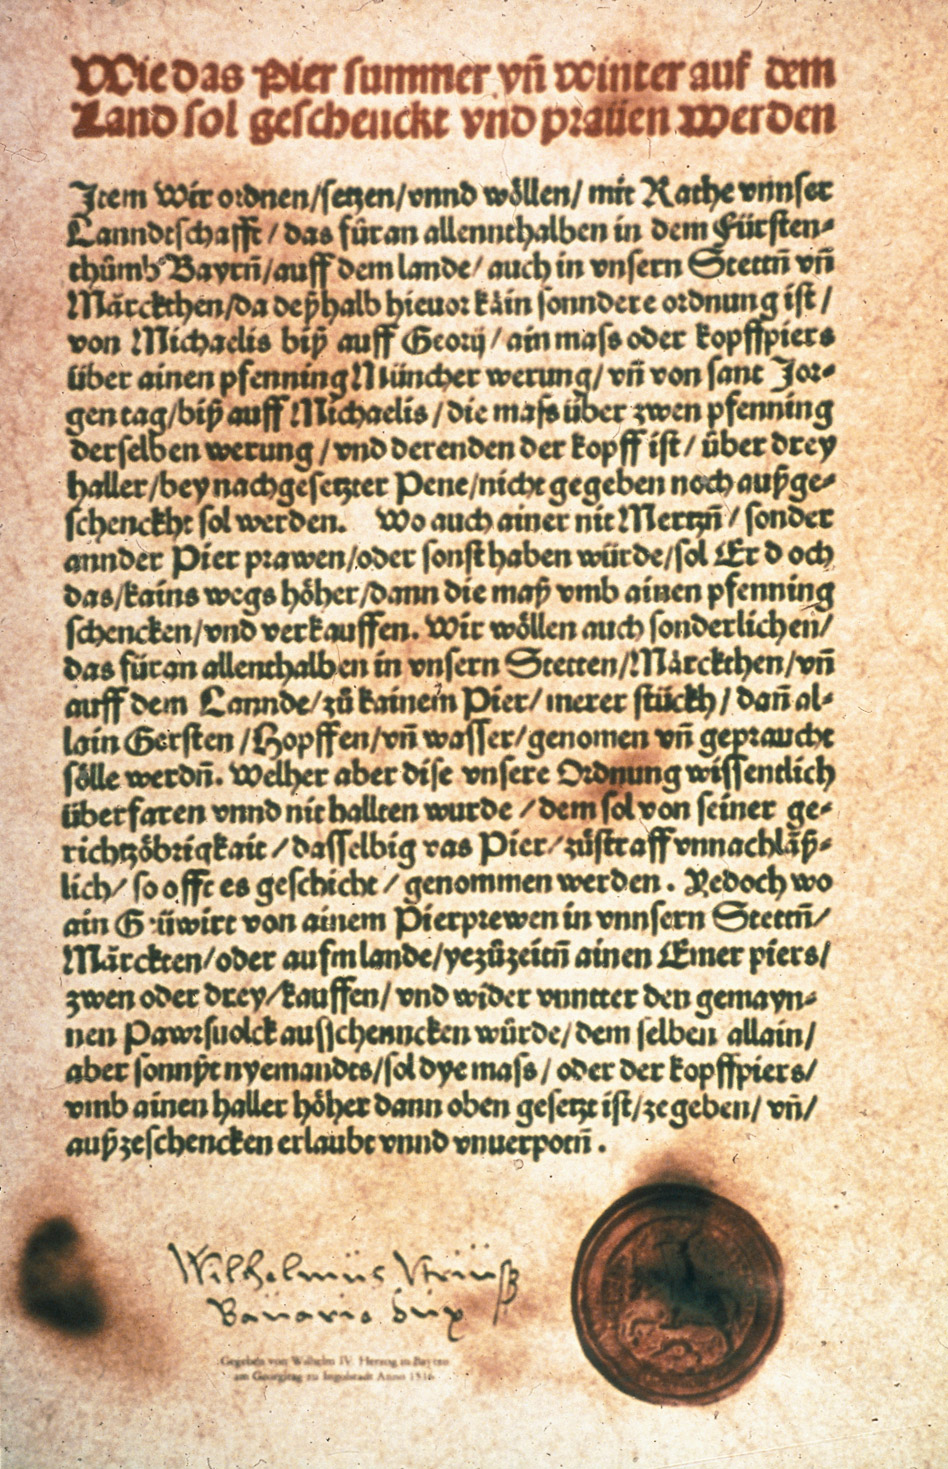 Wie das Pier summer vñ winter auf dem
Land sol geschenckt vnd praüen werden
Item Wir ordnen/setzen/vnnd wöllen/ mit Rathe vnnser
Lanndtschafft/ das füran allennthalben in dem Fürsten-
thůmb Bayrñ/auff dem lande/ auch in vnsern Stettñ vñ
Märckthen/da deßhalb hieuor kain sonndere ordnung ist/
von Michaelis biß auff Georij/ ain mass oder kopffpiers
über ainen pfenning Müncher werung/ vñ von sant Jor-
gentag/biß auff Michaelis/die mass über zwen pfenning
derselben werung/vnd derenden der kopff ist/ über drey
haller/bey nachgesetzter Pene/nicht gegeben noch außge-
schenckht sol werden. Wo auch ainer nit Mertzñ/ sonder
annder Pier prawen/oder sonst haben würde/sol Er d och
das/kains wegs höher/dann die maß vmb ainen pfenning
schencken/vnd verkauffen. Wir wöllen auch sonderlichen/
das füran allenthalben in vnsern Stetten/Märckthen/vñ
auff dem Lannde/zů kainem Pier/merer stückh/dañ al-
lain Gersten/Hopffen/vñ wasser/genomen vñ gepraucht
sölle werdñ. Welher aber dise vnsere Ordnung wissentlich
überfaren vnnd nit hallten wurde/dem sol von seiner ge-
richtzöbrigkait/dasselbig vas Pier/zůstraff vnnachläß-
lich/so offt es geschicht/genommen werden. Yedoch wo
ain Güwirt von ainem Pierprewen in vnnsern Stettñ/
Märckten/oder aufm lande/yezůzeitñ ainen Emer piers/
zwen oder drey/kauffen/vnd wider vnntter den gemayn-
nen Pawrsuolck ausschenncken würde/dem selben allain/
aber sonnßt nyemandts/sol dye mass/oder der kopffpiers/
vmb ainen haller höher dann oben gesetzt ist/ze geben/vñ/
außzeschencken erlaubt vnnd vnuerpotñ.
Wilhelmus
Bauarie dux
Gegeben von Wilhelm IV. Herzog in Bayern
am Georgitag zu Ingolstadt Anno 1516